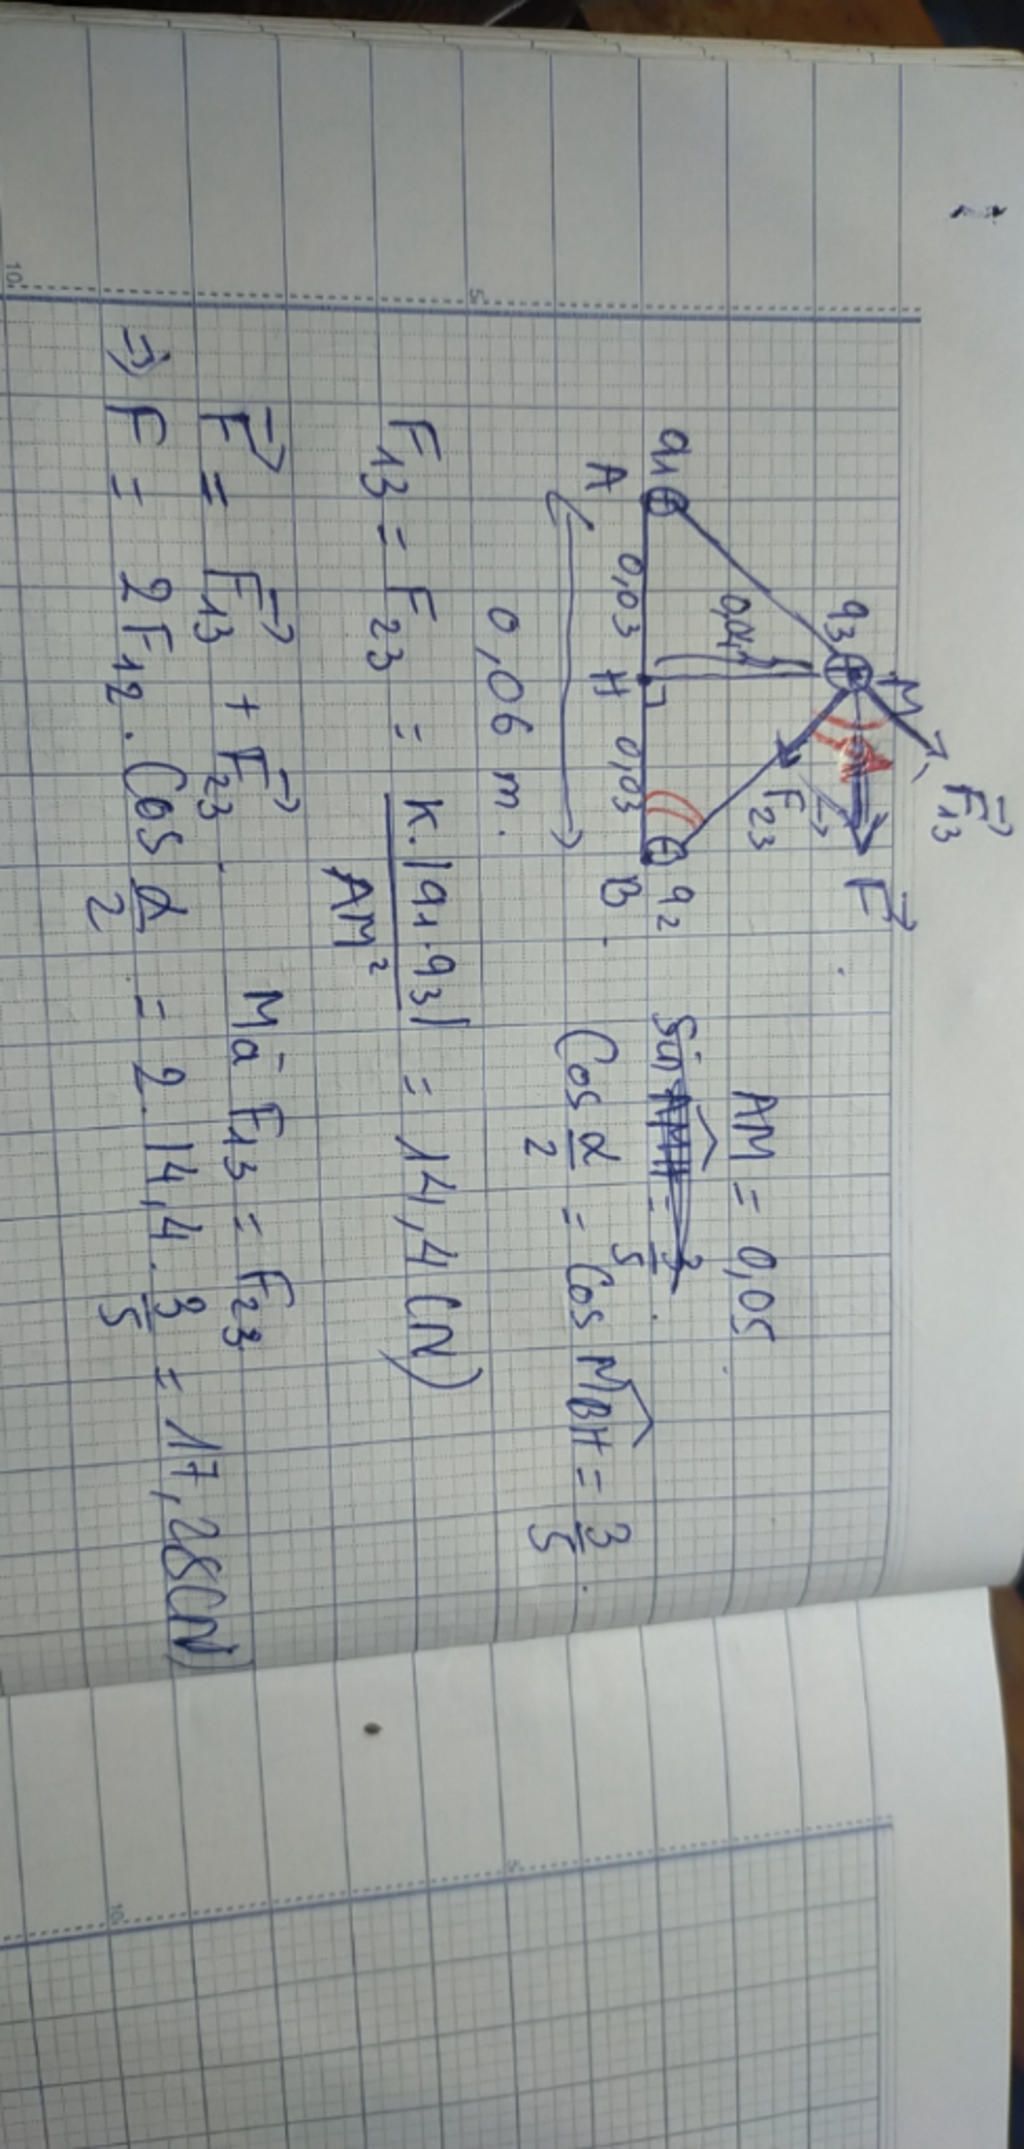 M
F⃗13
q3
F⃗
F⃗23
q1
q2
A 0,03 H 0,03 B
0,06 m.
AM = 0,05
Cos α/2 = Cos MBH = 3/5.
F13 = F23 = K.|q1.q3| / AM² = 14,4 (N)
F⃗ = F⃗13 + F⃗23. Mà F13 = F23
=> F = 2F12. Cos α/2 = 2. 14,4. 3/5 = 17,28(N)
5
10
5
10